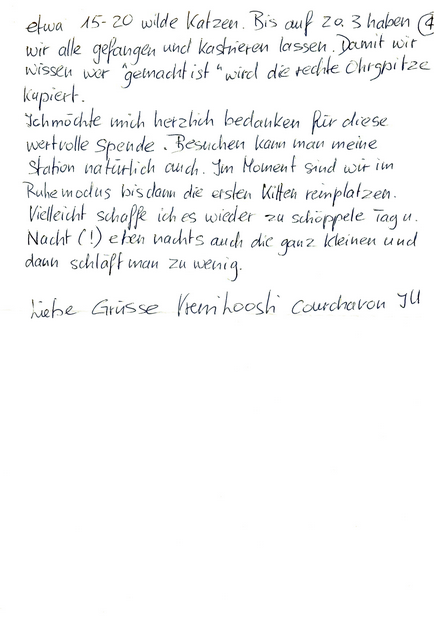 etwa 15-20 wilde Katzen. Bis auf 2 o. 3 haben 4
wir alle gefangen und kastrieren lassen. Damit wir
wissen wer "gemacht ist" wird die rechte Ohrspitze
kupiert.
Ich möchte mich herzlich bedanken für diese
wertvolle Spende. Besuchen kann man meine
Station natürlich auch. Im Moment sind wir im
Ruhemodus bis dann die ersten Kitten reinplatzen.
Vielleicht schaffe ich es wieder zu schöppele Tag u.
Nacht (!) eben nachts auch die ganz kleinen und
dann schläft man zu wenig.
Liebe Grüsse Courchavon JU